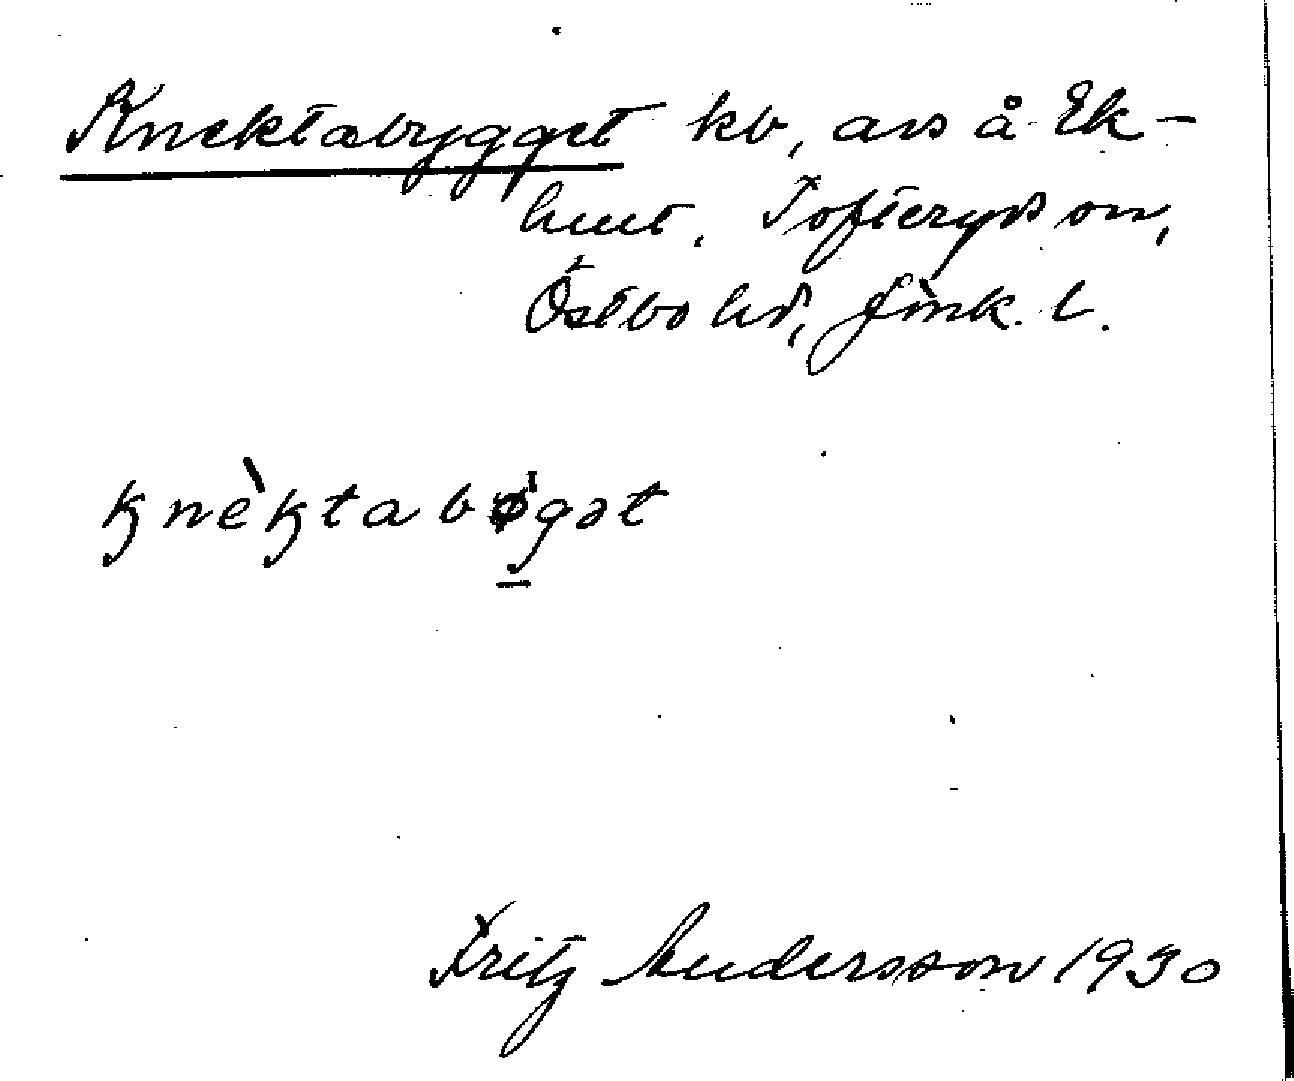 Knektabygget kb, avs å Ek-
hult, Tofteryds sn,
Östbo hd, Jönk. l.
knèktabø̀gət
Fritz Andersson 1930